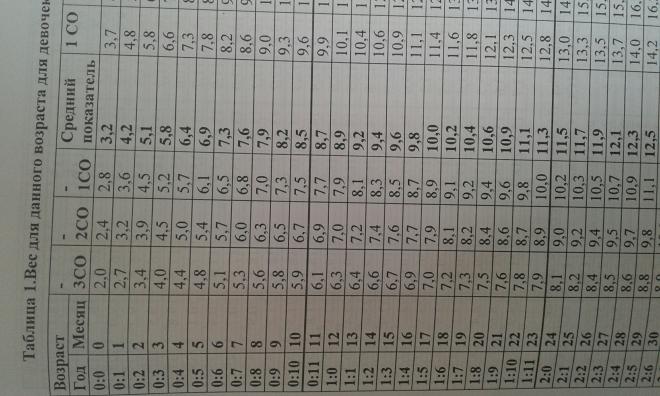 Таблица 1.Вес для данного возраста для девочек
Возраст - - - Средний 1 СО
Год Месяц 3СО 2СО 1СО показатель
0:0 0 2,0 2,4 2,8 3,2 3,7
0:1 1 2,7 3,2 3,6 4,2 4,8
0:2 2 3,4 3,9 4,5 5,1 5,8
0:3 3 4,0 4,5 5,2 5,8 6,6
0:4 4 4,4 5,0 5,7 6,4 7,3
0:5 5 4,8 5,4 6,1 6,9 7,8
0:6 6 5,1 5,7 6,5 7,3 8,2
0:7 7 5,3 6,0 6,8 7,6 8,6
0:8 8 5,6 6,3 7,0 7,9 9,0
0:9 9 5,8 6,5 7,3 8,2 9,3
0:10 10 5,9 6,7 7,5 8,5 9,6
0:11 11 6,1 6,9 7,7 8,7 9,9
1:0 12 6,3 7,0 7,9 8,9 10,1
1:1 13 6,4 7,2 8,1 9,2 10,4
1:2 14 6,6 7,4 8,3 9,4 10,6
1:3 15 6,7 7,6 8,5 9,6 10,9
1:4 16 6,9 7,7 8,7 9,8 11,1
1:5 17 7,0 7,9 8,9 10,0 11,4
1:6 18 7,2 8,1 9,1 10,2 11,6
1:7 19 7,3 8,2 9,2 10,4 11,8
1:8 20 7,5 8,4 9,4 10,6 12,1
1:9 21 7,6 8,6 9,6 10,9 12,3
1:10 22 7,8 8,7 9,8 11,1 12,5
1:11 23 7,9 8,9 10,0 11,3 12,8
2:0 24 8,1 9,0 10,2 11,5 13,0
2:1 25 8,2 9,2 10,3 11,7 13,3
2:2 26 8,4 9,4 10,5 11,9 13,5
2:3 27 8,5 9,5 10,7 12,1 13,7
2:4 28 8,6 9,7 10,9 12,3 14,0
2:5 29 8,8 9,8 11,1 12,5 14,2
2:6 30